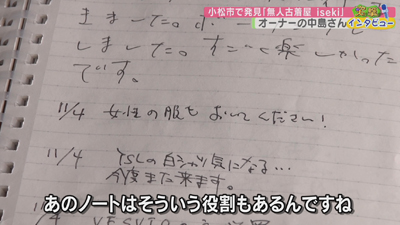 小松市で発見「無人古着屋 iseki」
オーナーの中島さんインタビュー
きました。
しました。すごく楽しかった
です。
11/4 女性の服もおいてください!
11/4 YSLの白シャツ気になる…
今度また来ます。
あのノートはそういう役割もあるんですね
11/4